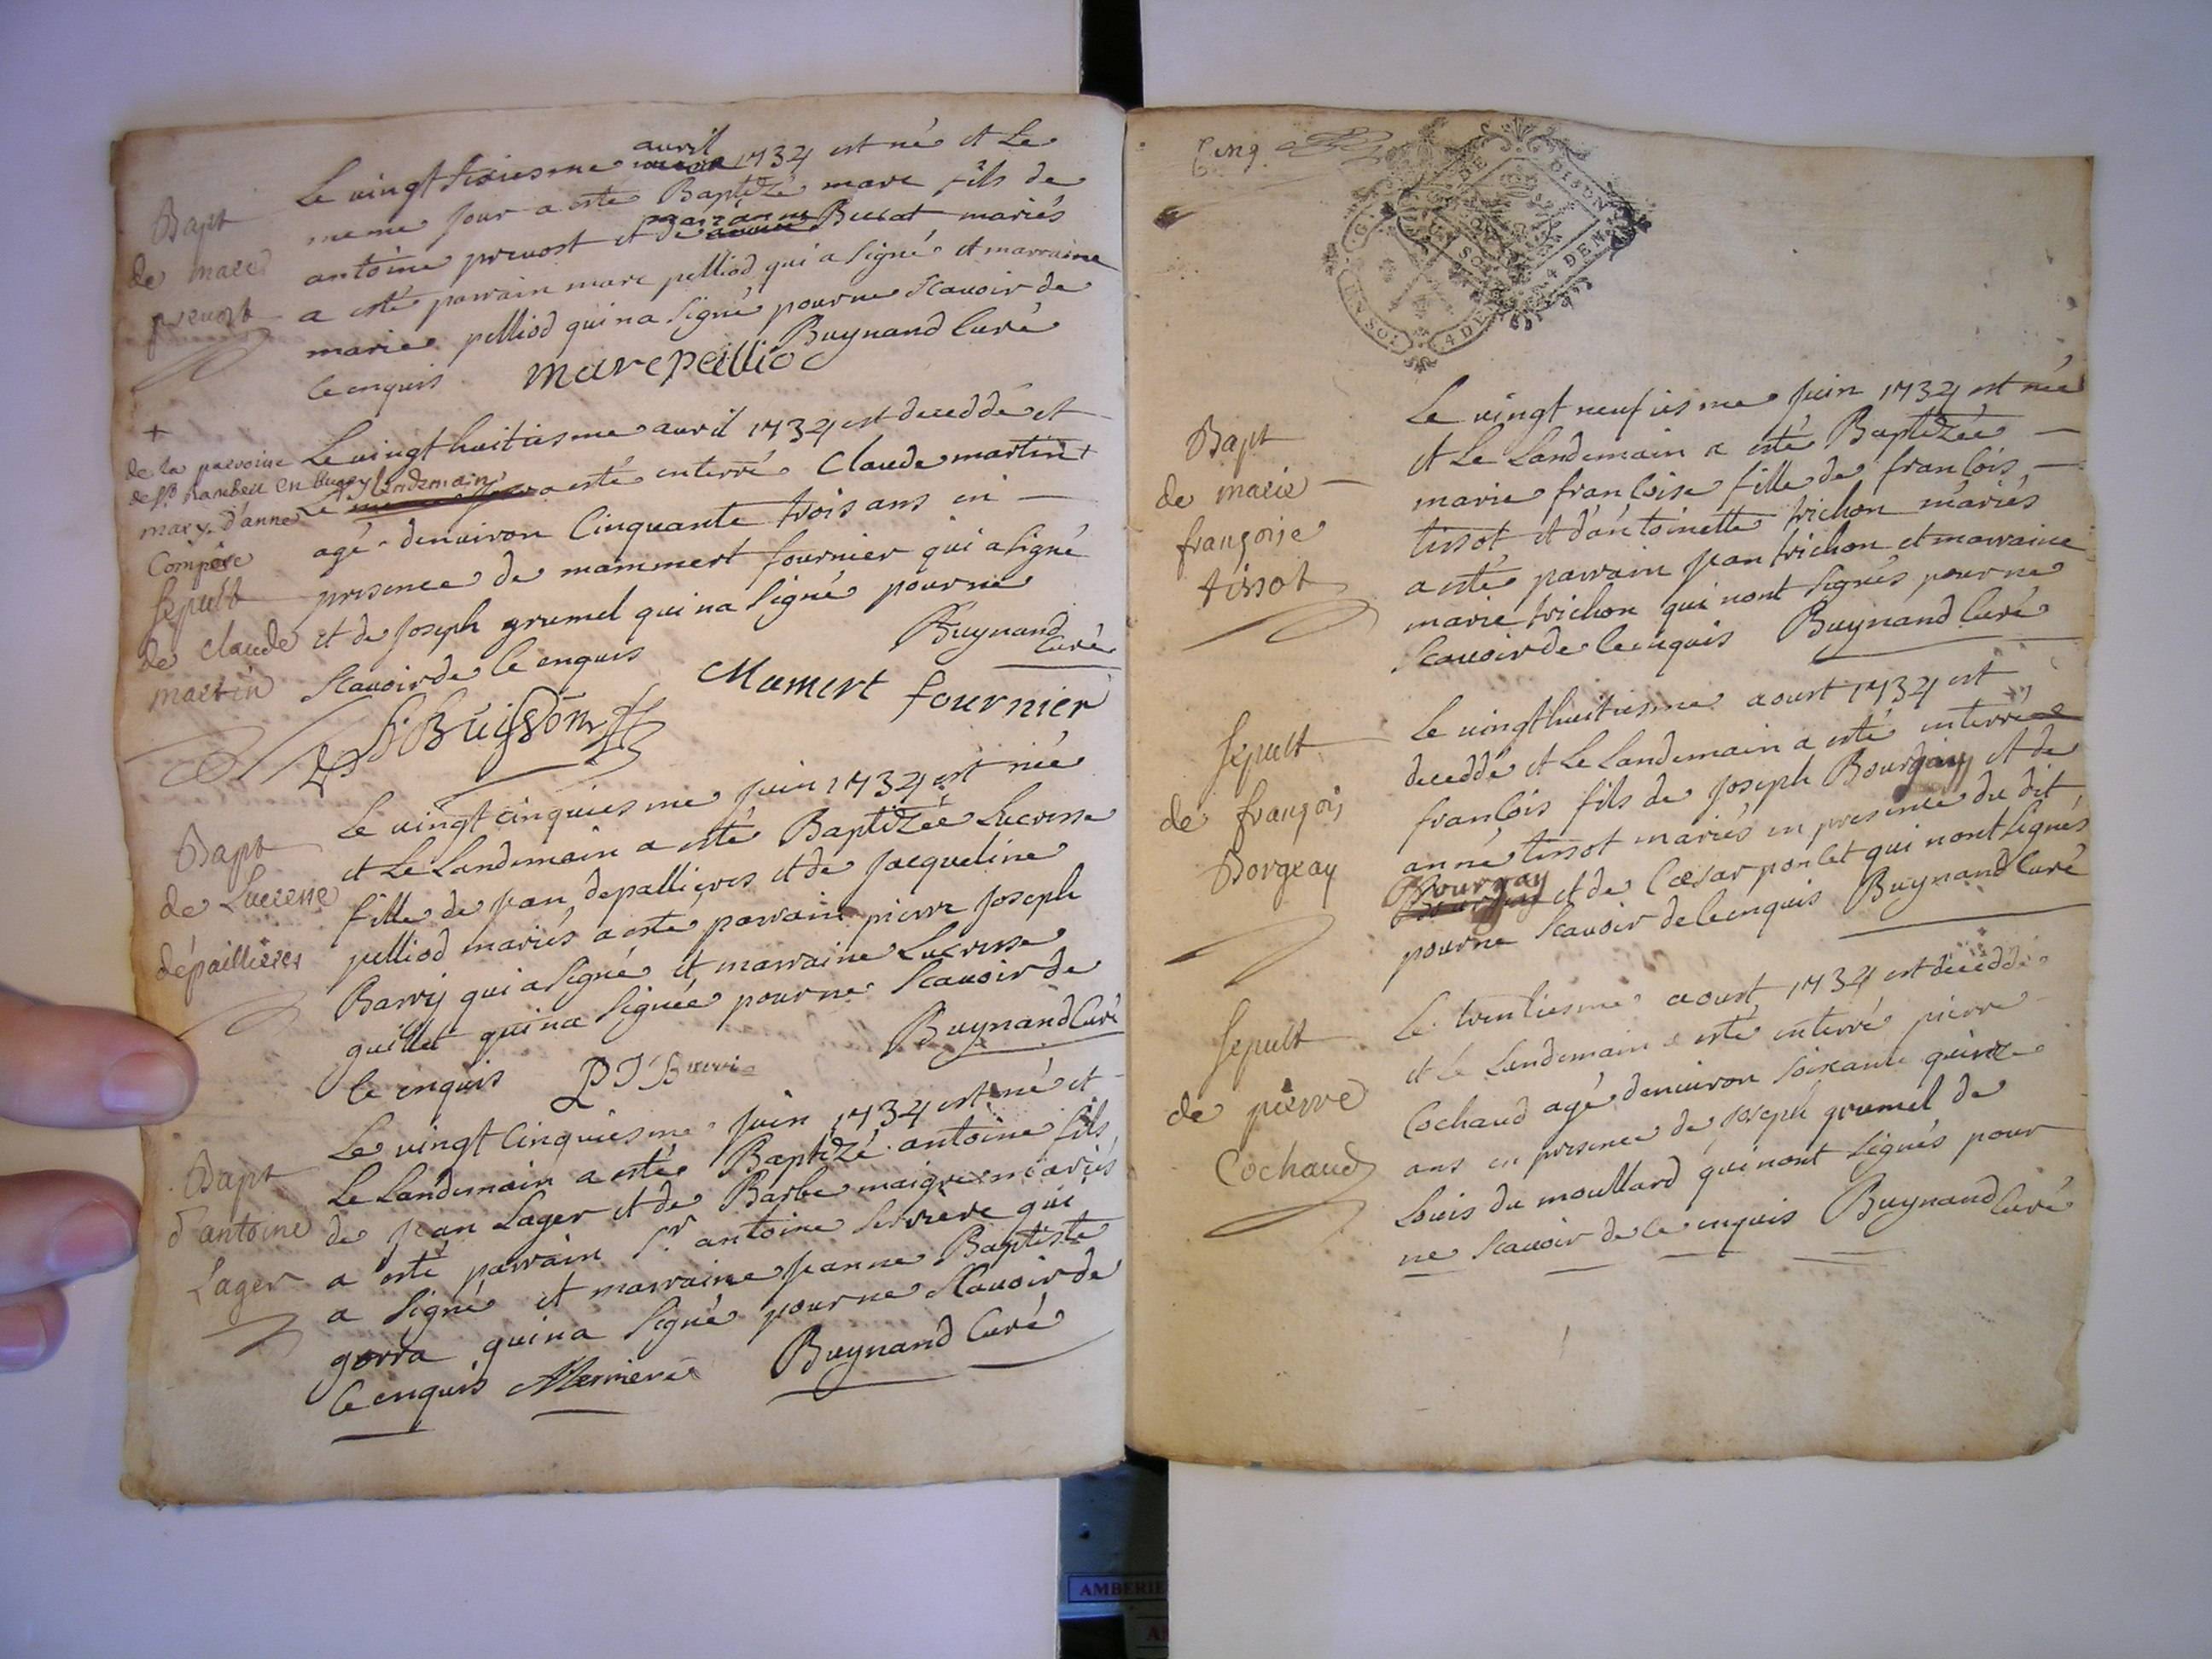 Bapt
de marc
prevost
Le vingt sixiesme avril 1734 est né et Le
meme jour a esté Baptizé marc fils de
antoine prevost et de Bussat mariés
a esté parrain marc pelliod qui a signé et marraine
marie pelliod qui na signé pour ne scavoir de
ce enquis marc peillio Buynand Curé
+
de la parroisse
de st Rambert en bugey
mary d'anne
Compère
sepult
de claude
martin
Le vingt huitiesme avril 1734 est deceddé et
Le lendemain a esté enterré Claude martin +
agé denviron Cinquante trois ans en
presence de mammert fournier qui a signé
et de joseph grumel qui na signé pour ne
scavoir de ce enquis Buynand
Curé
Mamert fournier
Buisson
Bapt
de Lucresse
dépaillieres
Le vingt cinquiesme juin 1734 est née
et Le Landemain a esté Baptizée Lucresse
fille de jean depallieres et de jacqueline
pelliod mariés a esté parrain pierre joseph
Barry qui a signé et marraine Lucresse
guillet qui na signée pour ne scavoir de
ce enquis P J Buynand Curé
Bapt
d'antoine
Lager
Le vingt Cinquiesme juin 1734 est né et
Le Landemain a esté Baptizé antoine fils
de jean Lager et de Barbe maigre mariés
a esté parrain Sr antoine qui
a signé et marraine jeanne Baptiste
gorra qui na signé pour ne scavoir de
ce enquis Buynand Curé
Cinq
DE
4 DEN
UN SOL
4 DE
Bapt
de marie
françoise
tissot
Le vingt neufiesme juin 1734 est née
et Le Landemain a esté Baptizée
marie françoise fille de francois
tissot et d'antoinette trichon mariés
a esté parrain jean trichon et marraine
marie trichon qui nont signés pour ne
scavoir de ce enquis Buynand Curé
sepult
de françois
Borgeay
Le vingt huitiesme aoust 1734 est
deceddé et Le Landemain a esté enterré
françois fils de joseph Bourgay et de
anne tissot mariés en presence du dit
Bourgay et de Cæsar poncet qui nont signés
pour ne scavoir de ce enquis Buynand Curé
sepult
de pierre
Cochaud
Le trentiesme aoust 1734 est deceddé
et le Landemain a esté enterré pierre
Cochaud agé denviron soixante quinze
ans en presence de joseph grumel de
Louis du moullard qui nont signés pour
ne scavoir de ce enquis Buynand Curé
AMBERIE